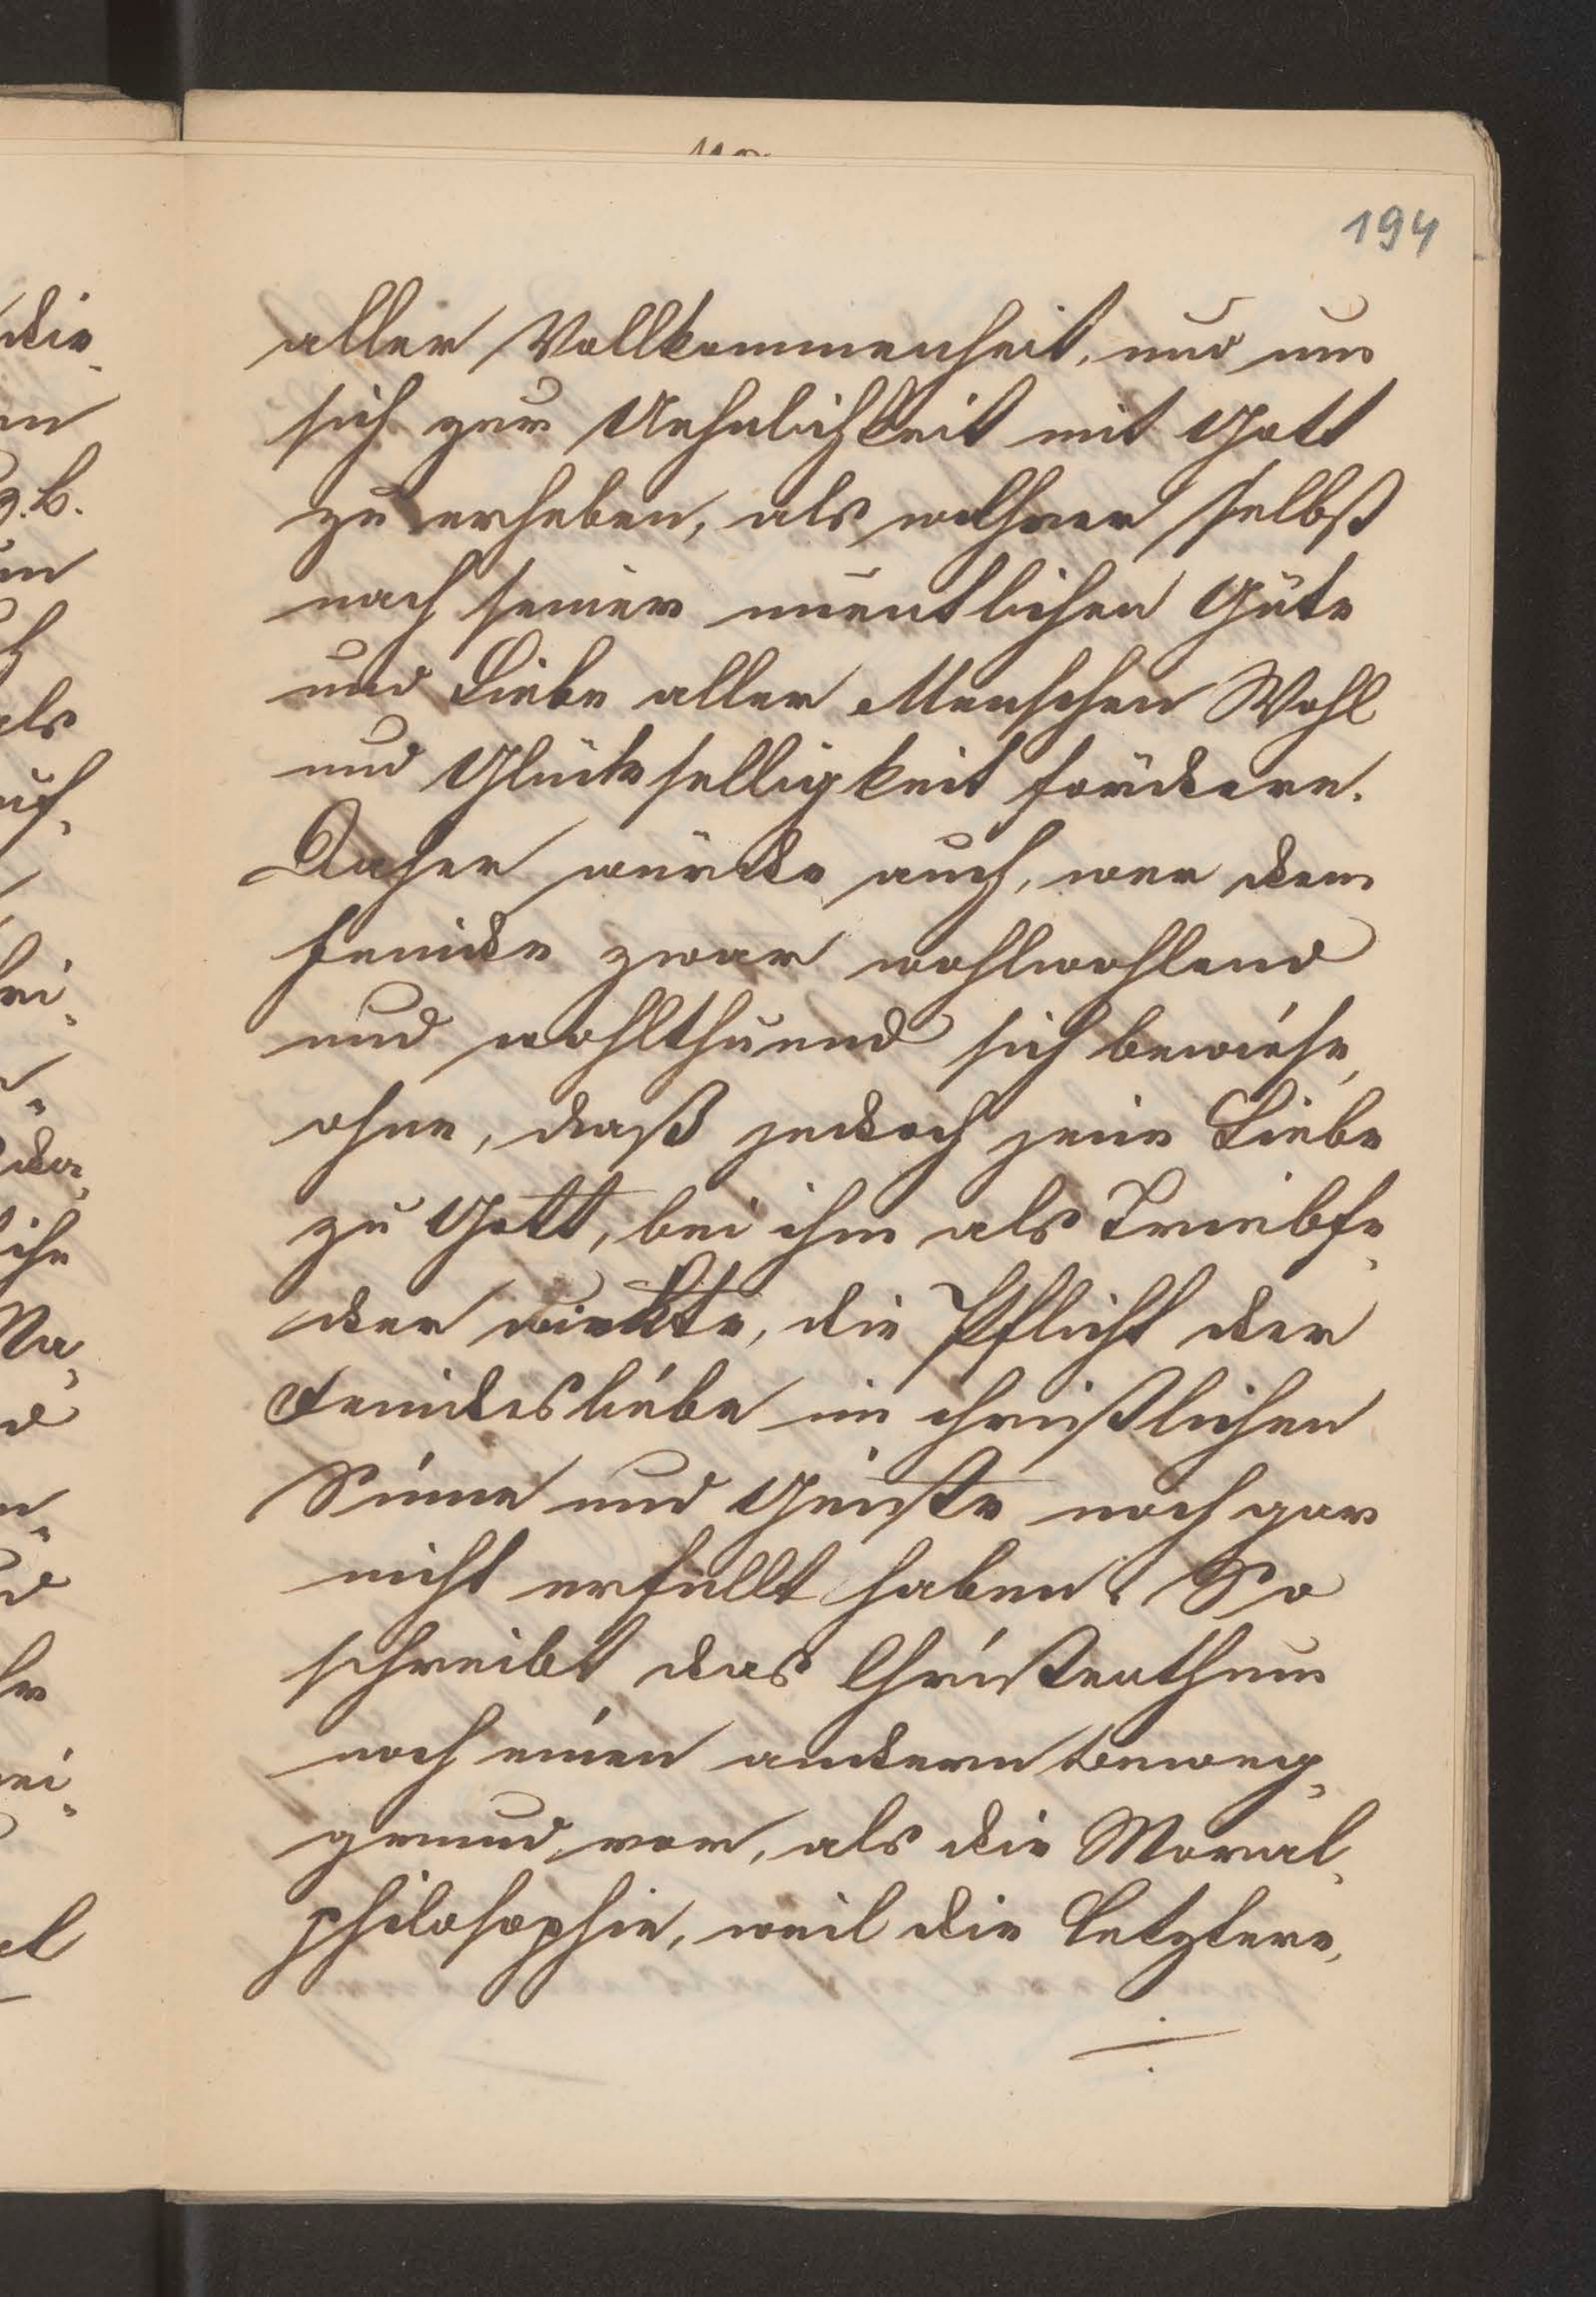 194
aller Vollkommenheit, und um
sich zur Aehnlichkeit mit Gott
zu erheben, als welcher selbst
nach seiner unentlichen Güte
und Liebe aller Menschen Wohl
und Glückselligkeit fördere.
Daher würde auch, wer dem
Feinde zwar wohlwohlend
und wohlthuend sich bewiese,
ohne, daß jedoch jene Liebe
zu Gott, bei ihm als Triebfe„
der wirkte, die Pflicht der
Feindesliebe im christlichen
Sinne und Geiste noch gar
nicht erfüllt haben. So
schreibt das Christenthum
noch einen andern Beweg„
grund vor, als die Moral„
philosophie, weil die Letztere,